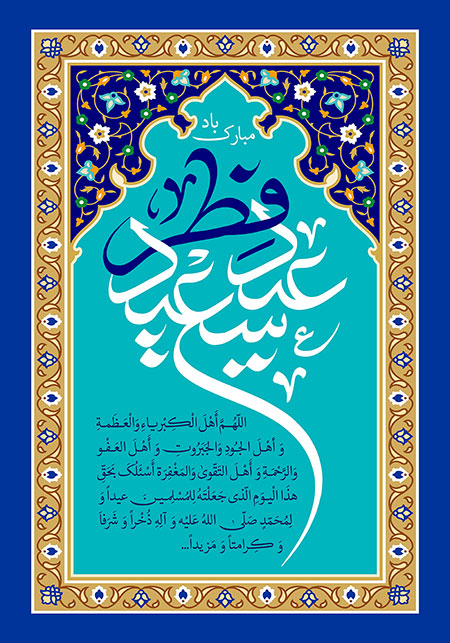 مبارک باد
عید سعید فطر
اللّهُمَّ أَهْلَ الْكِبْرِياءِ وَالْعَظَمَةِ
وَ أَهْلَ الجُودِ وَالجَبَرُوتِ وَ أَهْلَ العَفْوِ
وَالرَّحْمَةِ وَ أَهْلَ التَّقْوىٰ وَالمَغْفِرَةِ أَسْئَلُکَ بِحَقِّ
هٰذَا الْيَومِ الَّذی جَعَلْتَهُ لِلمُسْلِمينَ عيداً وَ
لِمُحَمَّدٍ صَلَّی اللهُ عَلَيْهِ وَ آلِهِ ذُخْراً وَ شَرَفاً
وَ كِرامَتاً وَ مَزيداً...